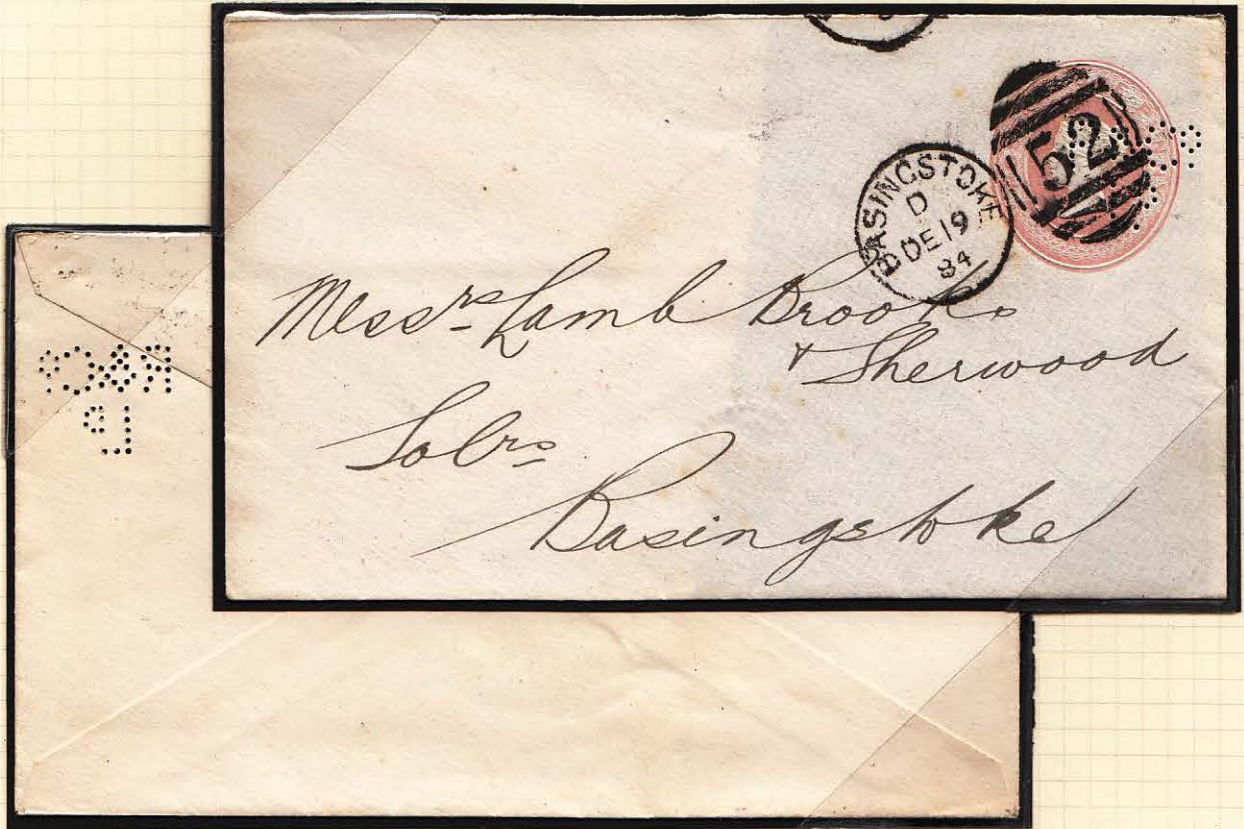 BASINGSTOKE
D
DE 19
84
52
Messrs Lamb Brooks
& Sherwood
Solrs
Basingstoke